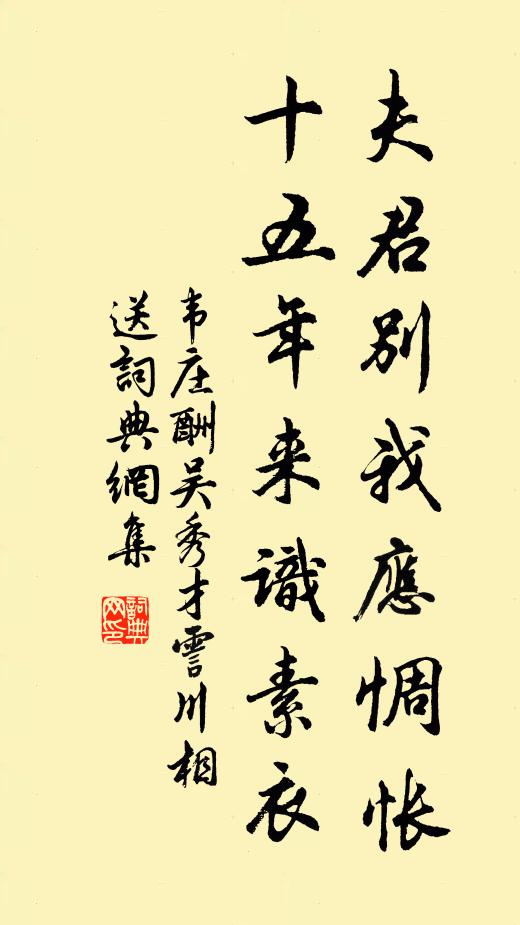 夫君别我應惆怅
十五年来識素衣
韦庄酬吴秀才霅川相
送詞典網集
詞典
网印